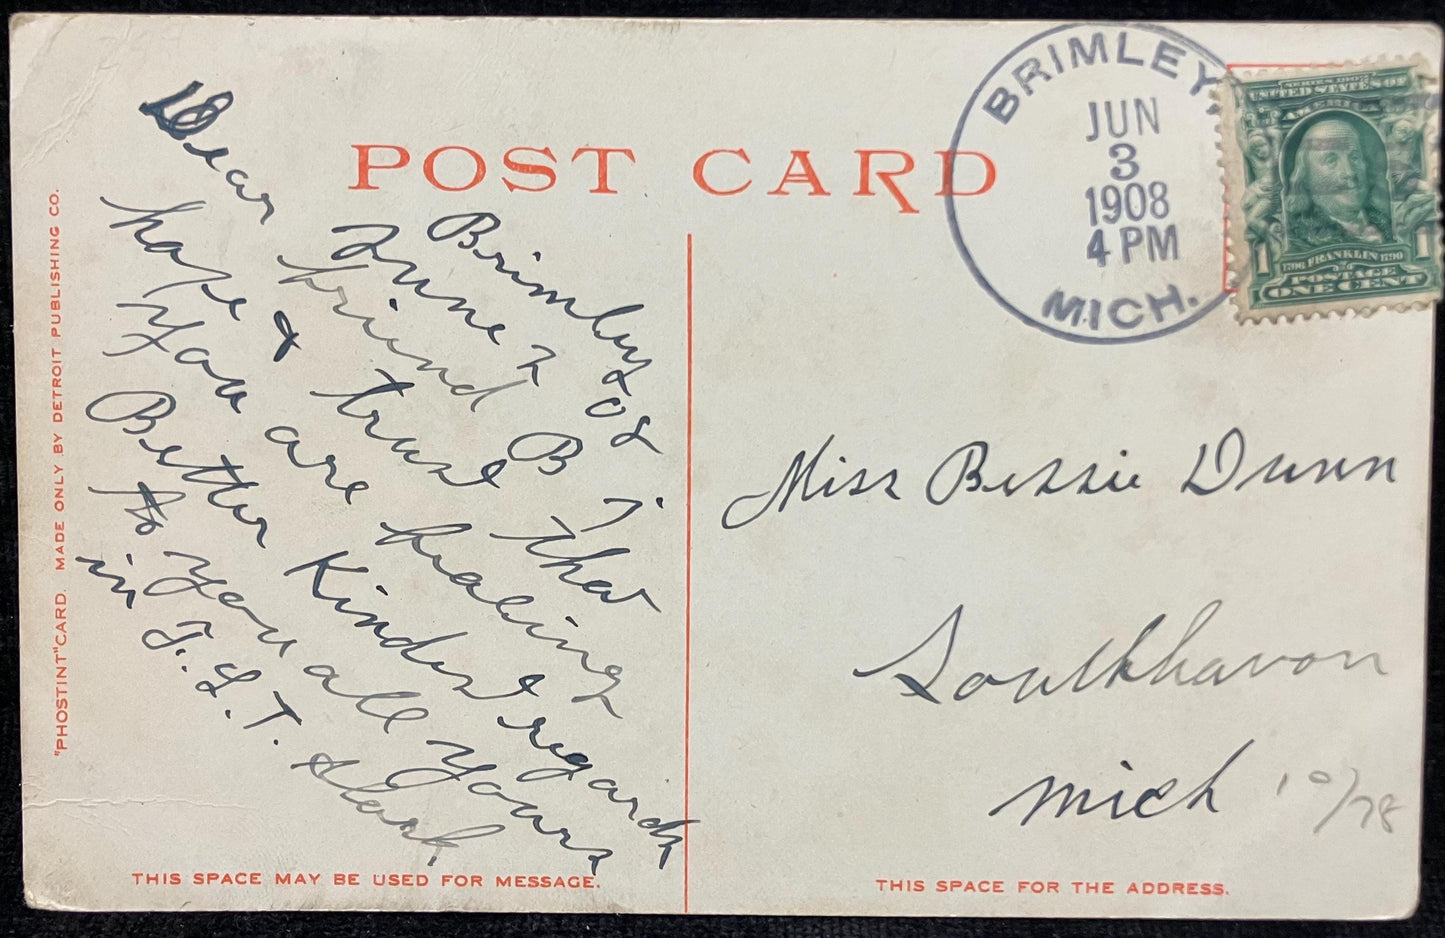 POST CARD
BRIMLEY,
JUN
3
1908
4 PM
MICH.
SERIES 1902
UNITED STATES OF
AMERICA
1 1
1706 FRANKLIN 1790
POSTAGE
ONE CENT
"PHOSTINT" CARD. MADE ONLY BY DETROIT PUBLISHING CO.
Brimley
June 2 08
Dear friend B i
hope & trust that
you are healing
Better Kindest regards
to you all yours
in F. L. T.
Miss Bessie Dunn
Southhavon
Mich
10/78
THIS SPACE MAY BE USED FOR MESSAGE.
THIS SPACE FOR THE ADDRESS.